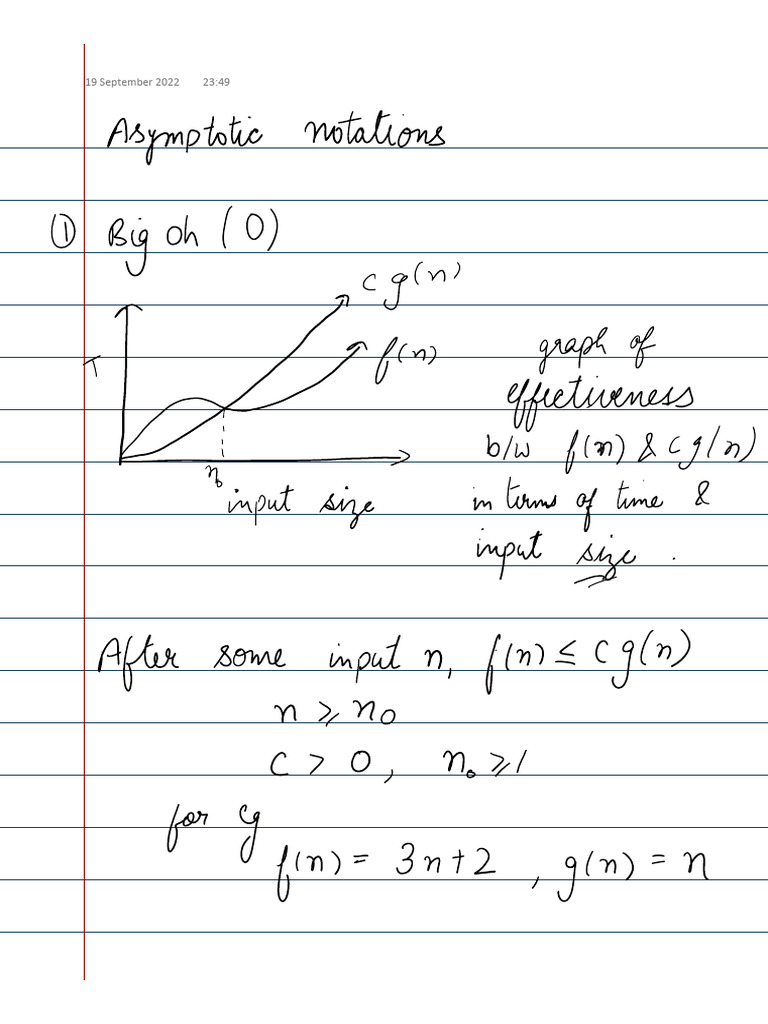 19 September 2022 23:49
Asymptotic notations
① Big Oh (O)
c g(n)
f(n)
T
n₀
input size
graph of
effectiveness
b/w f(n) & c g(n)
in terms of time &
input size.
After some input n, f(n) ≤ c g(n)
n ≥ n₀
c > 0, n₀ ≥ 1
for eg
f(n) = 3n+2, g(n) = n